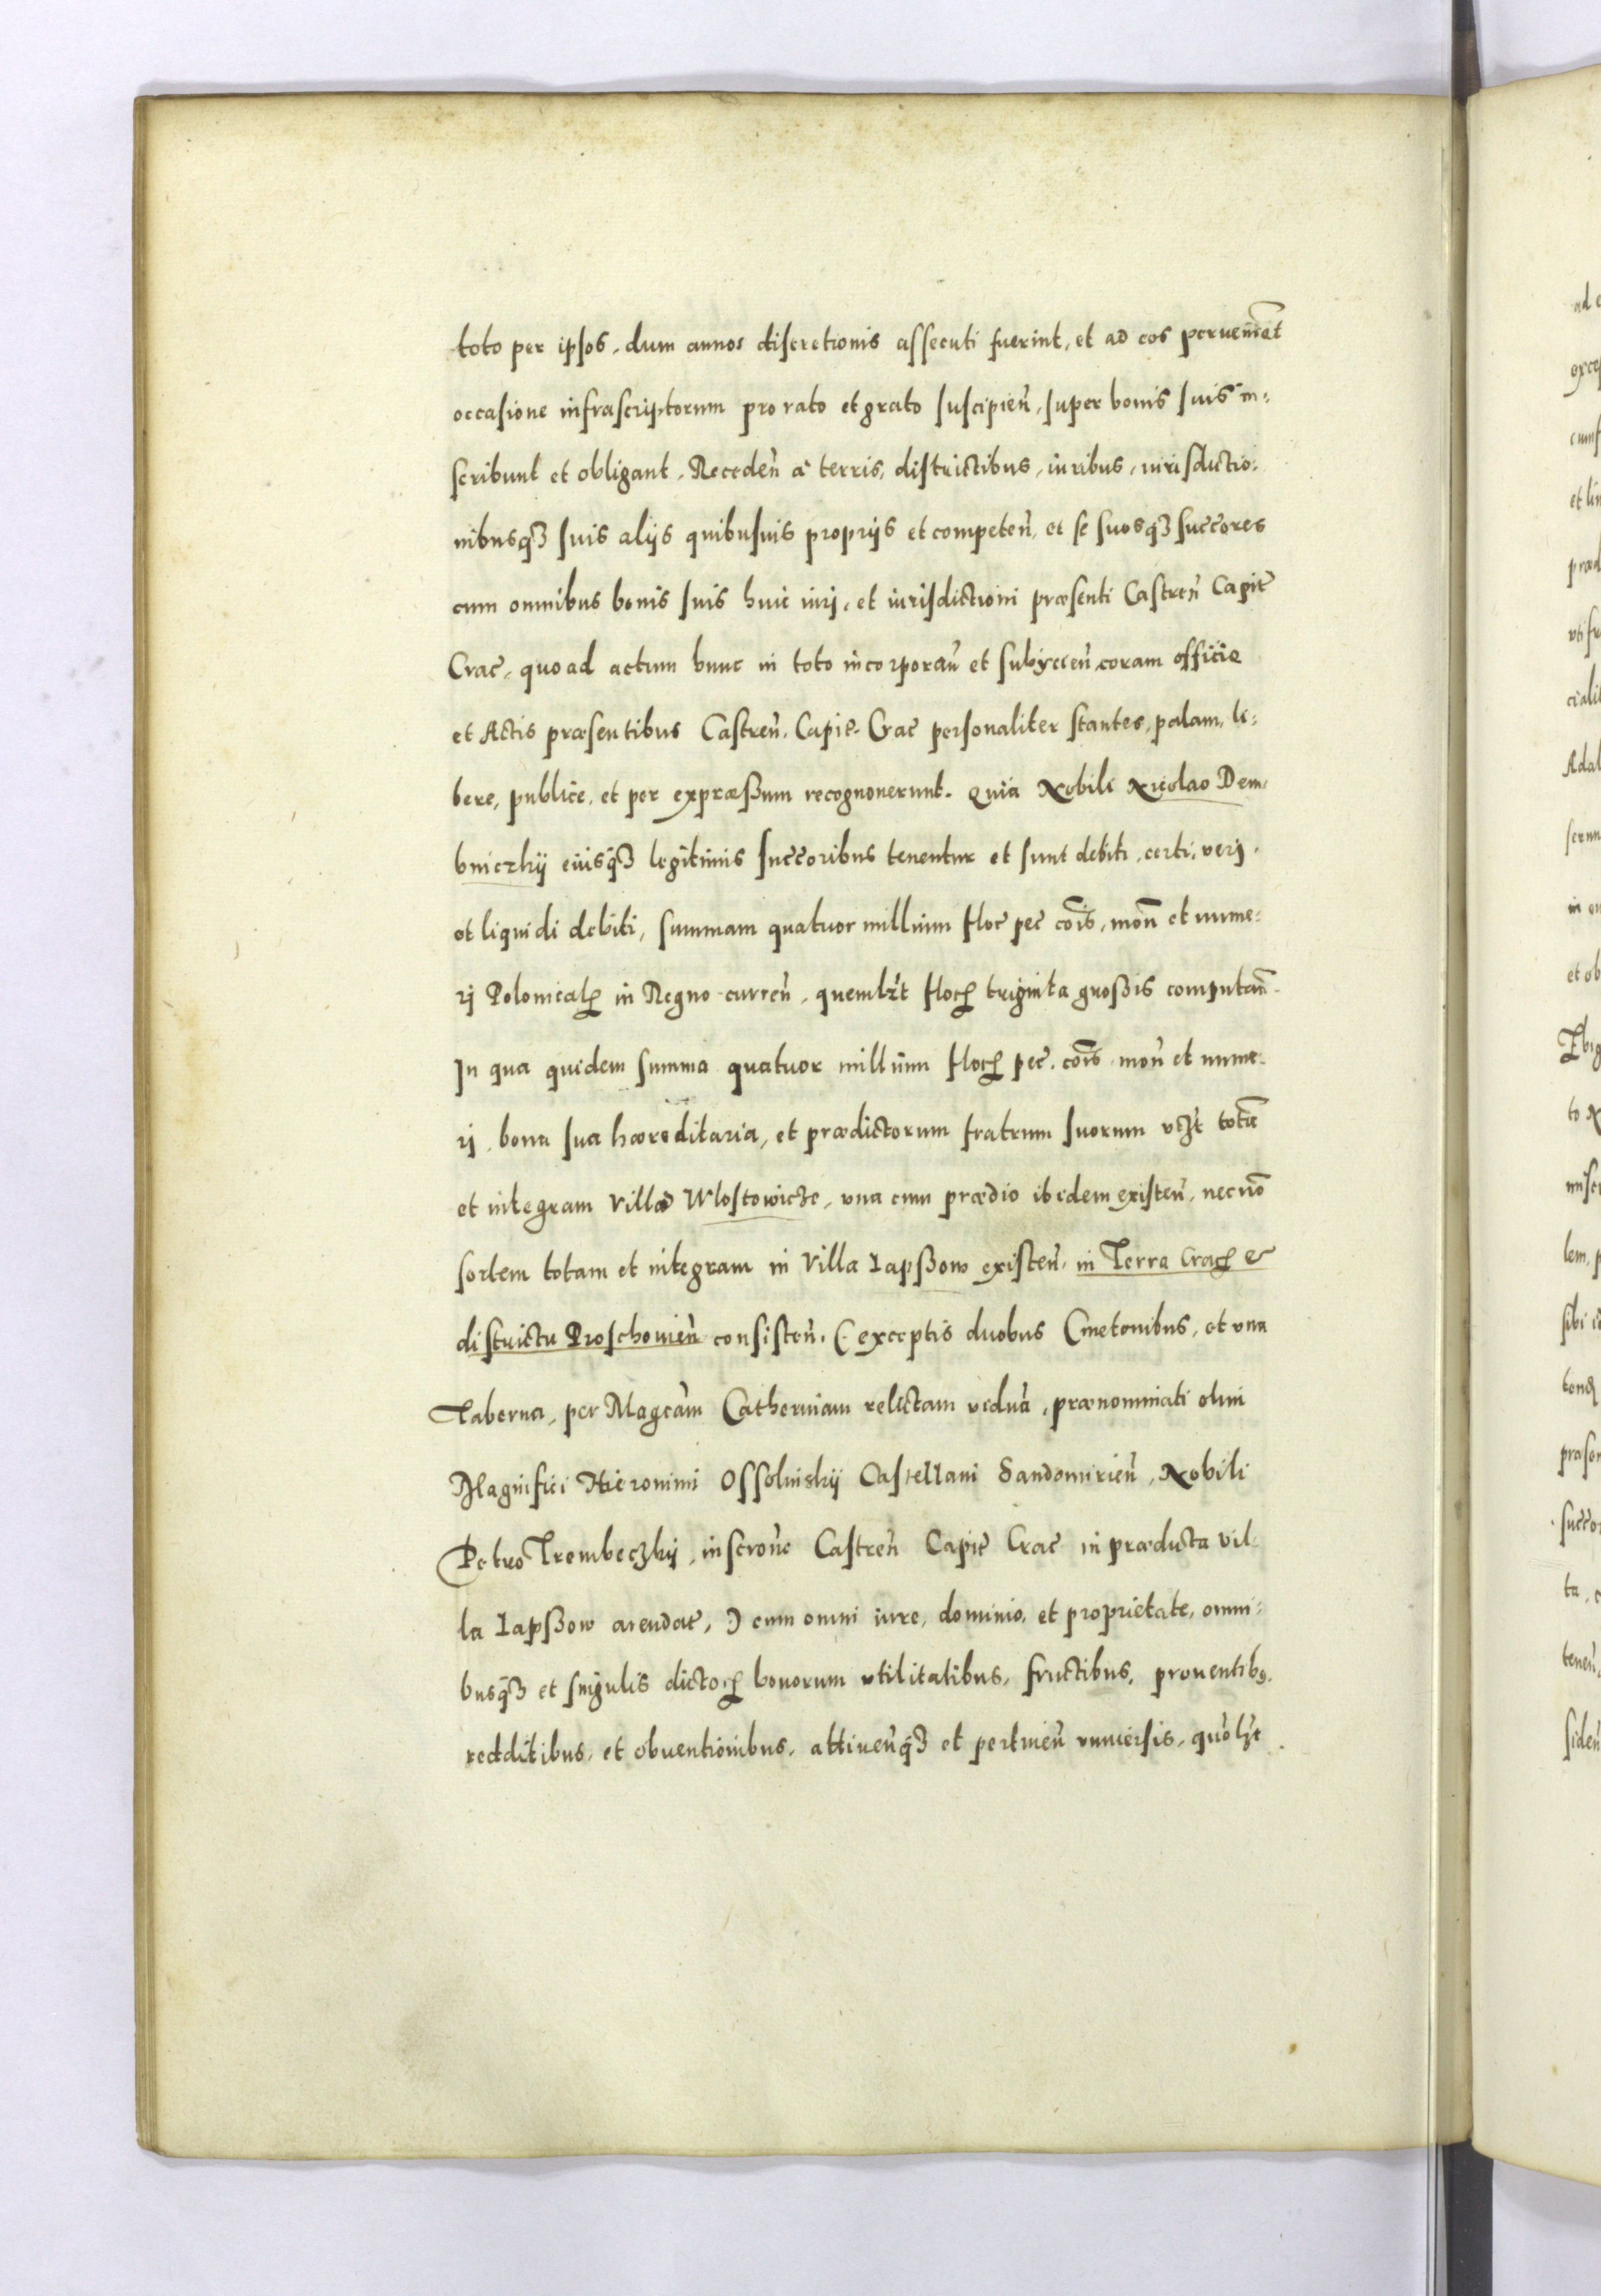 toto per ipsos, dum annos discretionis assecuti fuerint, et ad eos peruenie͠t
occasione infrascriptorum pro rato et grato suscipien̄, super bonis suis in=
scribunt et obligant, Receden̄ a terris, districtibus, iuribus, iurisdictio=
nibusqȝ suis alijs quibusuis proprijs et competen̄, et se suosqȝ succ̄ores
cum omnibus bonis suis huic iurj, et iurisdictioni præsenti Castren̄ Capit̄
Crac̄, quo ad actum hunc in toto incorporan̄ et subijcien̄, coram officio
et Actis præsentibus Castren̄, Capit̄. Crac̄ personaliter stantes, palam, li=
bere, publice, et per expræßum recognouerunt. Quia Nobili Nicolao Dem=
bniczkij eiusqȝ legitimis succ̄oribus tenentur et sunt debiti, certi, verj,
et liquidi debiti, summam quatuor millium floc̄ pec̄ co͠is, mon̄ et nume=
rj Polonicalꝝ in Regno curren̄, quemlꝫt flocꝝ triginta großis computan̄.
In qua quidem summa quatuor millium flocꝝ pec̄. co͠is mon̄ et nume=
rj, bona sua hæreditaria, et prædictorum fratrum suorum vcꝫt totā
et integram Villā Wlostowicze, vna cum prædio ibidem existen̄, necnō
sortem totam et integram in Villa Iapßow existen̄, in Terra Cracꝝ &
districtu Proschouien̄ consisten̄, (exceptis duobus Cmetonibus, et vna
Taberna, per Magcā̄m Catherinam relictam viduā, prænominati olim
Magnifici Hieronimi Ossolinskij Castellani Sandomirien̄, Nobili
Petro Trembeczkij, inscron̄e Castren̄ Capit̄ Crac̄ in prædicta vil=
la Iapßow arendat̄,) cum omni iure, dominio, et proprietate, omni=
busqȝ et singulis dictoꝝ bonorum vtilitatibus, fructibus, prouentibꝫ,
redditibus, et obuentionibus, attinen̄qȝ et pertinen̄ vniuersis, quolꝫt